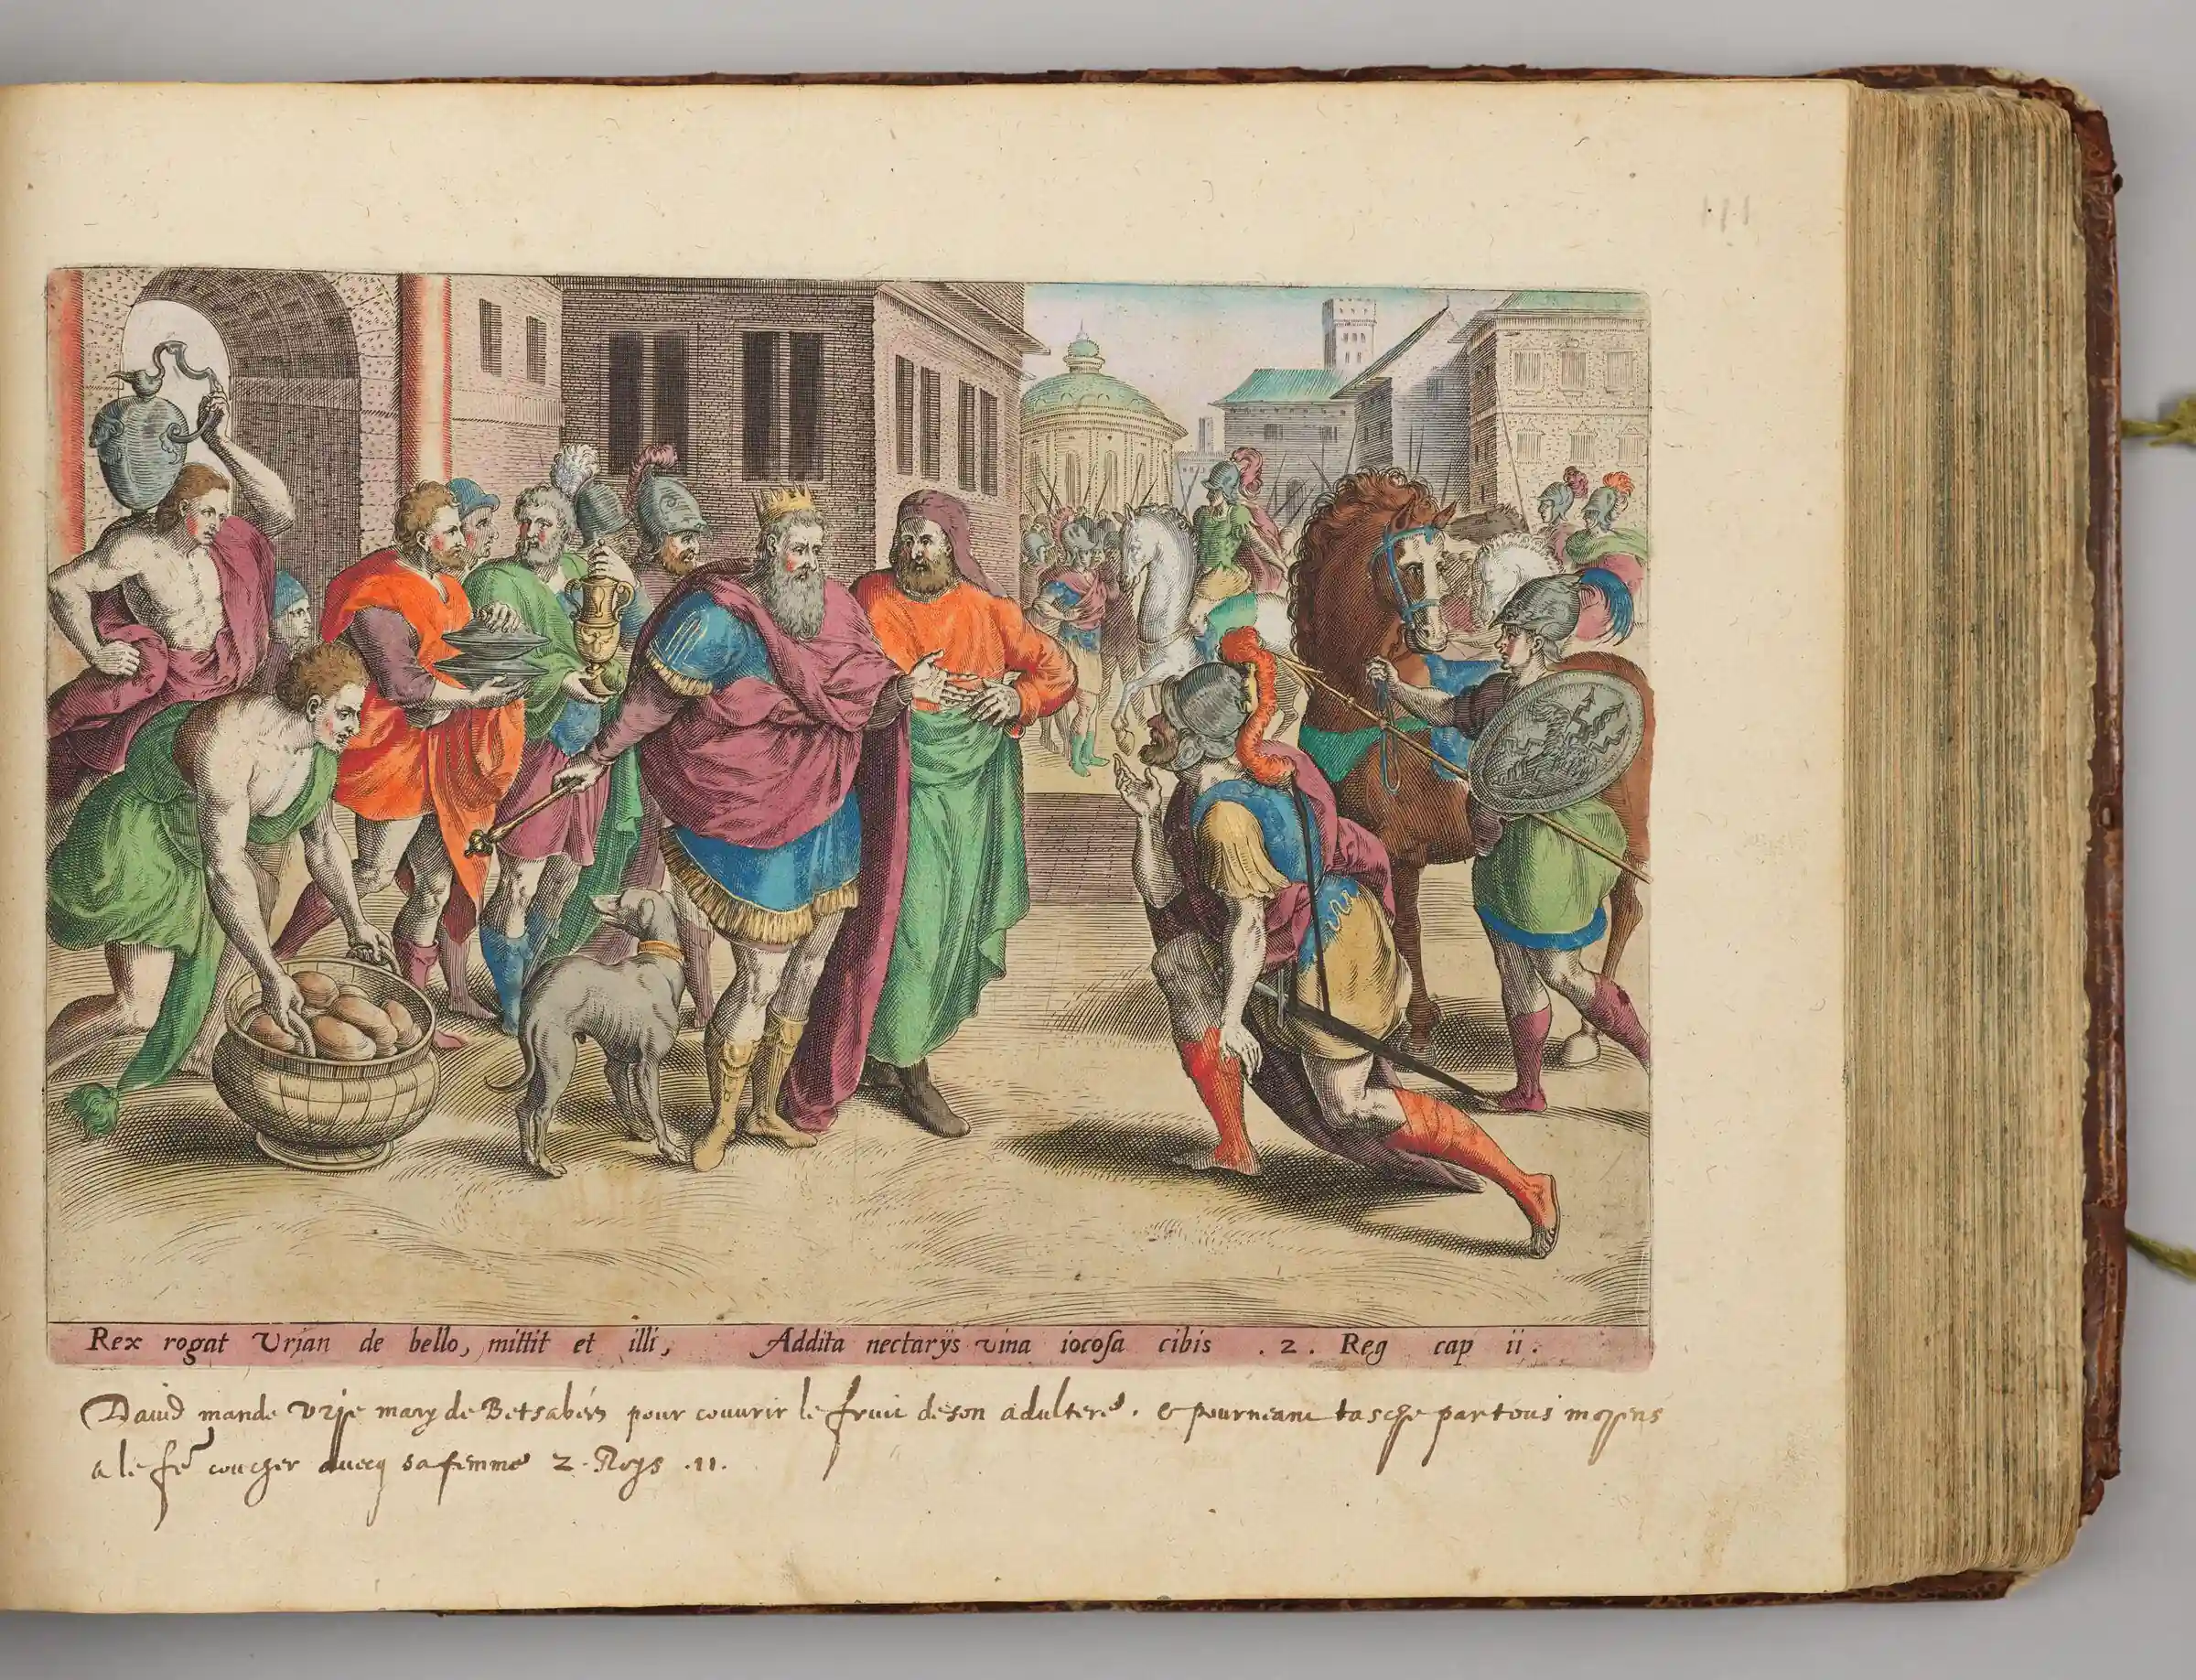 Rex rogat Vrian de bello, mittit et illi, Addita nectarijs vina iocosa cibis . 2 . Reg cap ii .
Dauid mande Vrje mary de Betsabéé pour couurir le fruit de son adultere . & pour neant tasche par tous moyens
a le fẽ coucher auecq sa femme 2 . Roys .11.